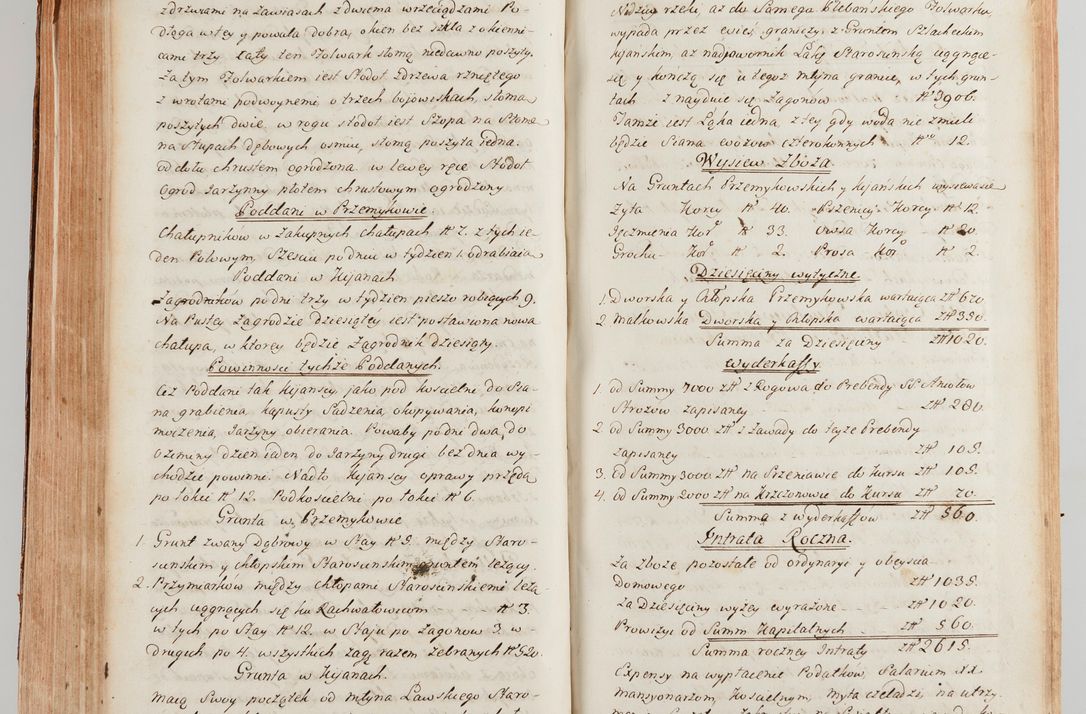 zdrzwiami na zawiasach z dwiema wrzeciądzami Po-
dłoga w tey y powała dobra, okien bez szkła z okienni-
cami trzy. Cały ten Folwark słomą niedawno poszyty.
Za tym Folwarkiem iest Stodoł zdrzewa rzniętego
z wrotami podwoynemi o trzech bojowiskach, słomą
poszytych dwie. w rogu stodoł iest Szopa na Słomę
na Słupach dębowych osmiu, słomą poszyta iedna.
od dołu chrustem ogrodzona. w lewey ręce Stodoł
Ogród Jarzynny płotem chrustowym ogrodzony
Poddani w Przemykowie.
Chałupników w zakupnych chałupach Nº 7. z tych ie-
den Polowym, Szesciu po dniu w tydzień 1. odrabiaia
Poddani w Kijanach
Zagrodników po dni trzy w tydzien pieszo robiących 9.
Na Pustey Zagrodzie dziesiątey iest postawiona nowa
chałupa, w ktorey będzie Zagrodnik dziesiąty.
Powinnosci tychże Poddanych.
Ciż Poddani tak Kijanscy jako pod koscielni, do Sia-
na grabienia, kapusty Sadzenia, okopywania, konopi
moczenia, Jarzyny obierania. Powaby po dni dwa, do
Ozeminy dzien ieden do Jarzyny drugi bez dnia wy-
chodzic powinni. Nadto kijanscy oprawy przędą
po łokci Nº 12. Podkoscielni po łokci Nº 6.
Grunta w Przemykowie
1. Grunt zwany Dąbrowy w Stay Nº 9. między Staro-
scinskim y chłopskim Starosciński gruntem leżący.
2. Przymiarkow między chłopami Staroscinskiemi leżą-
cych ciągnących się ku Rachwałowicom — Nº 3.
w tych po Stay Nº 12. w Staju po Zagonow 3. w
drugich po 4. wszystkich zag. razem zebranych Nº 520.
Grunta w Kijanach.
maią Swoy początek od młyna Ławskiego Staro-
Nidzicy rzeki, aż do Samego Plebańskiego Folwarku,
wypada przez ewież graniczy z Gruntem Szlacheckim
kijanskim, aż nad powornik Łąkę Starosciński ciągnące
się y kończą się u tegoż młyna granice, w tych grun-
tach znayduie się Zagonów Nº 3906.
Tamże iest Łąka iedna z tey gdy woda nie zmuli
będzie Siana wozow czterokonnych Nº 12.
Wysiew Zboża.
Na Gruntach Przemykowskich y kijańskich wysiewa się
Zyta Korcy Nº 40. Pszenicy Korcy Nº 12.
Jęczmienia Kor. Nº 33. Owsa Korcy Nº 20.
Grochu Kor. Nº 2. Prosa Kor. Nº 2.
Dziesięciny wytyczne
1. Dworska y Chłopska Przemykowska wartaiąca zł 670.
2. Malkowska Dworska y Chłopska wartaiąca zł 350.
Summa za Dziesięciny zł 1020.
Wyderkaffy.
1. od Summy 7000 zł z Rogowa do Prebendy SS. Aniołow
Strozow zapisaney — zł 280.
2. od Summy 3000 zł z Zawady do teyże Prebendy
zapisaney zł 105.
3. od Summy 3000 zł na Przeniawie do Kursu zł 105.
4. od Summy 2000 zł na Krzczonowie do Kursu zł 70.
Summa z wyderkaffow zł 560.
Intrata Roczna.
Za zboże, pozostałe od ordynaryi y obeyscia
Domowego zł 1035.
Za Dziesięciny wyżey wyrażone — zł 1020.
Prowizyi od Summ Kapitalnych zł 560.
Summa roczney Intraty zł 2615.
Expensy na wypłacenie Podatkow, Salarium xx.
mansyonarzom, Koscielnym, myta czeladzi, na utrzy-